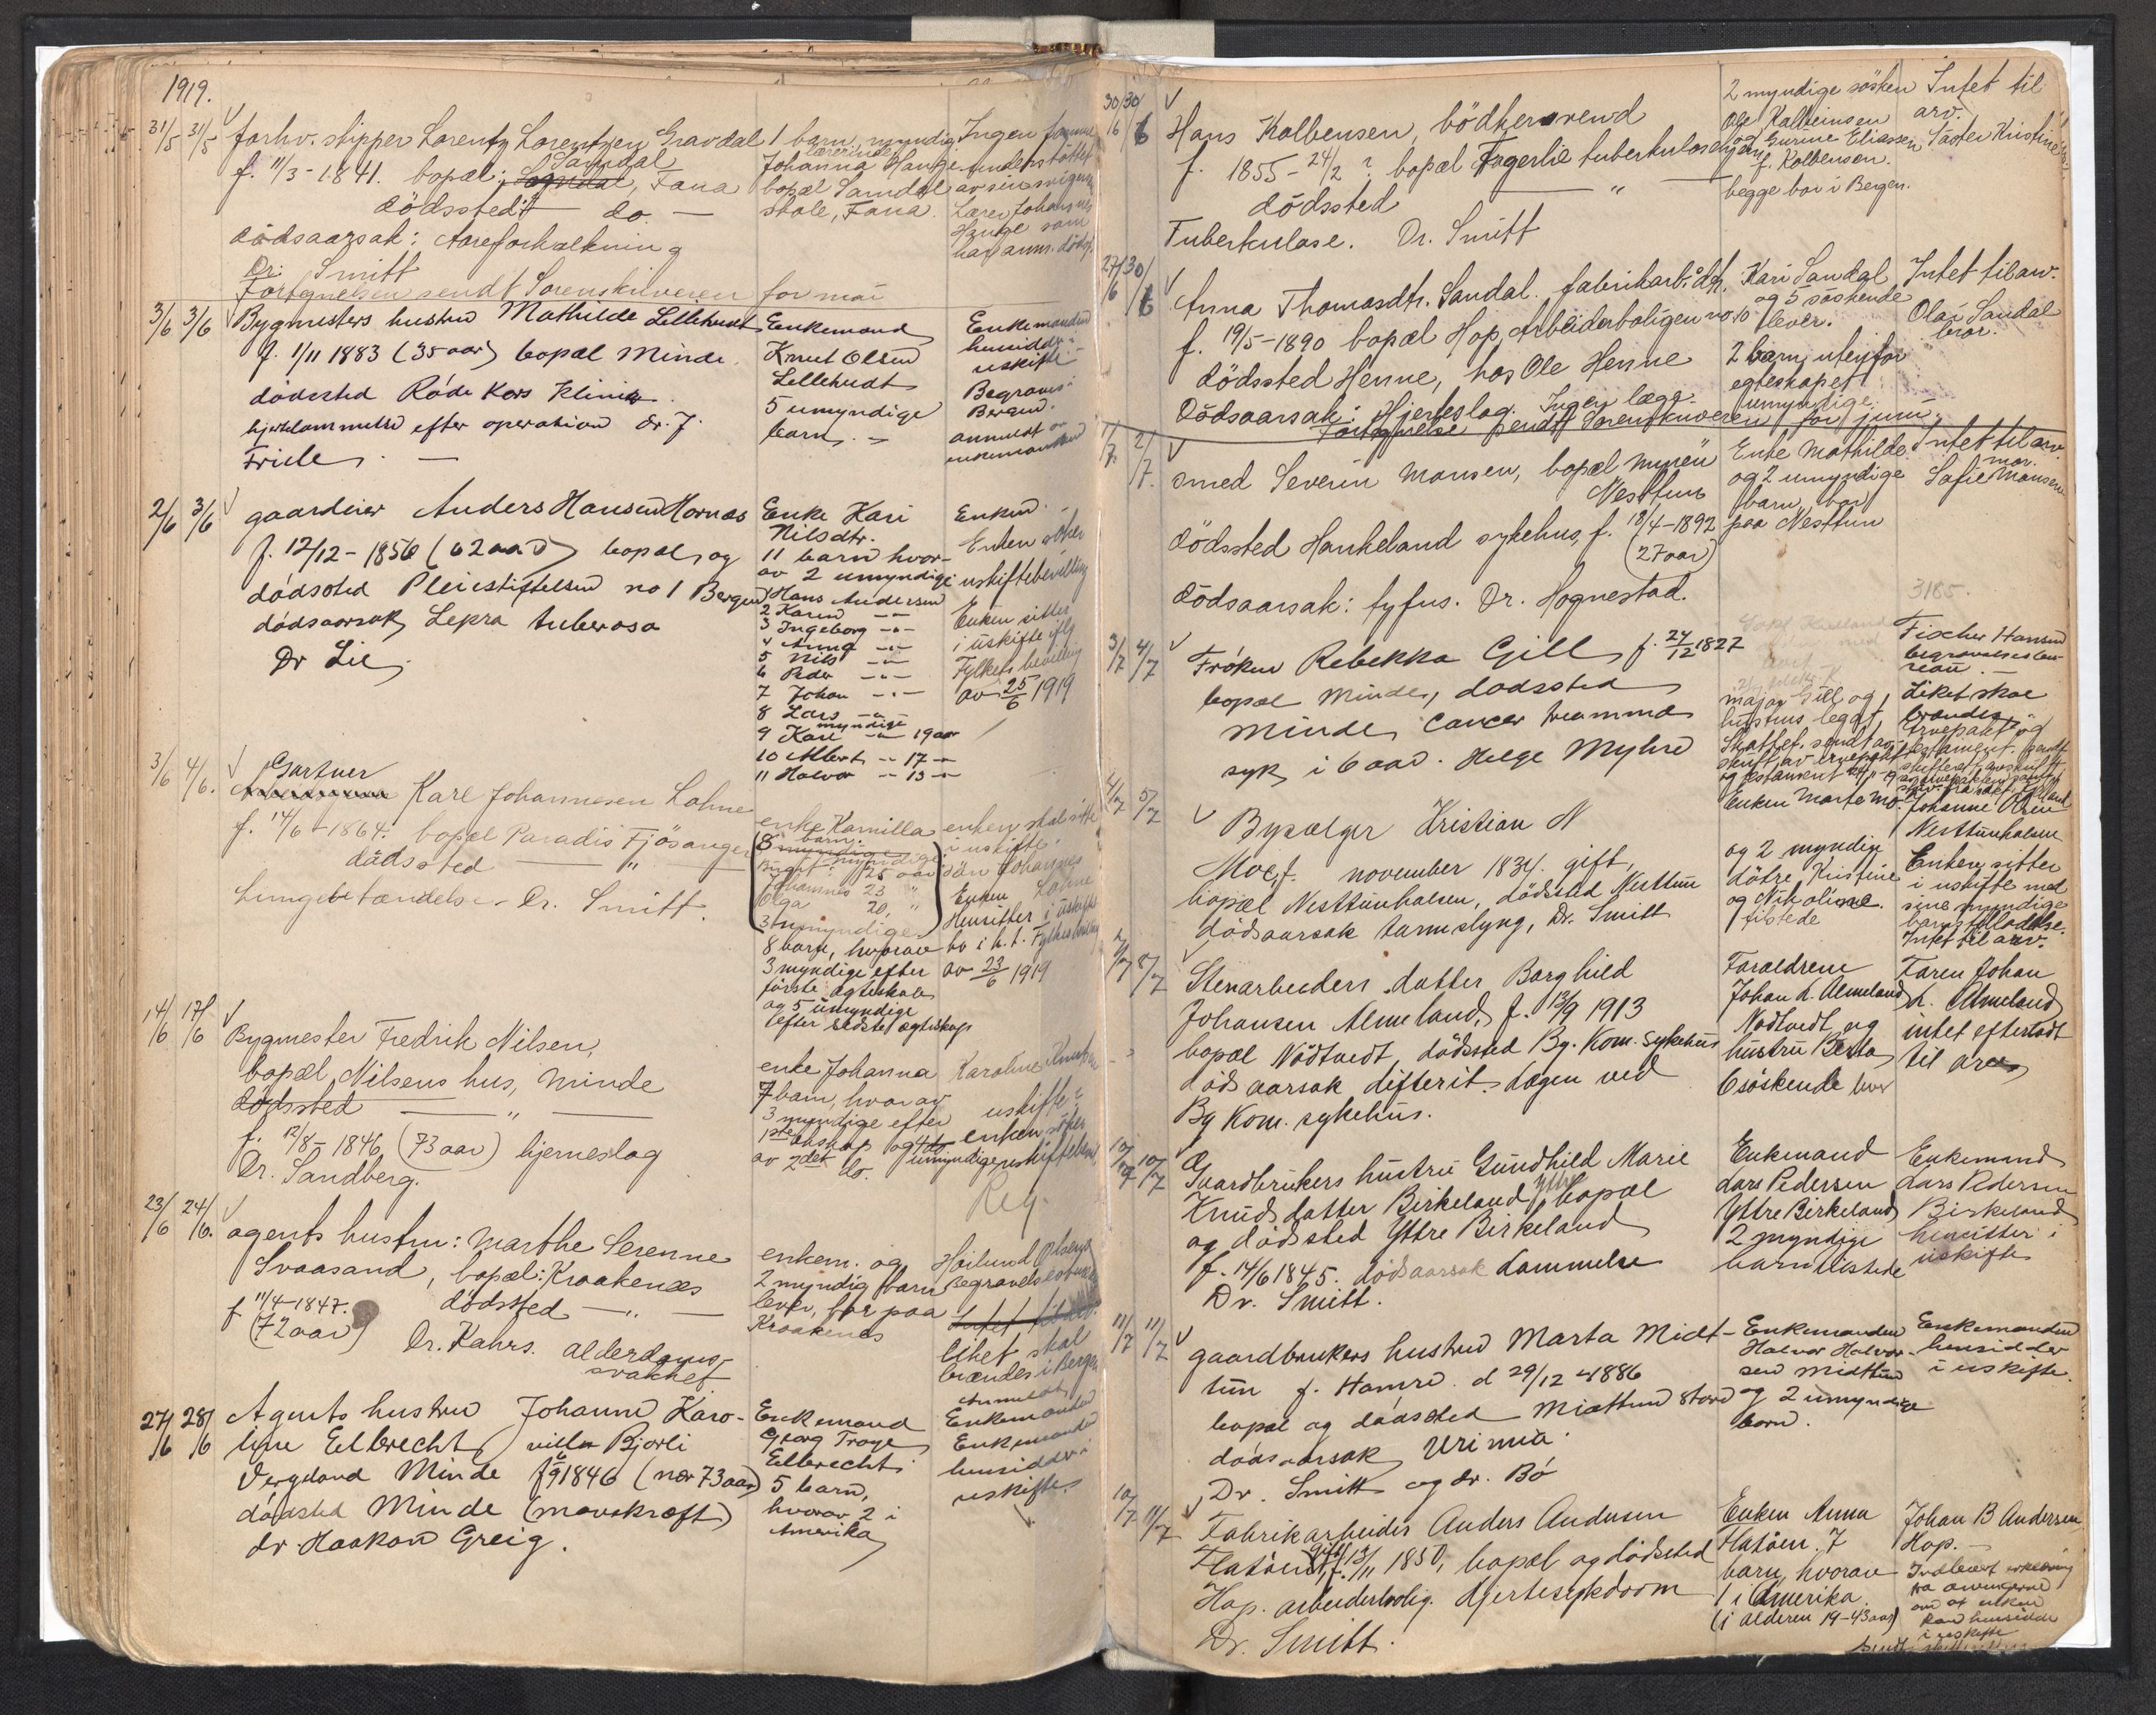 1919.
31/5 31/5 forhv. skipper Lorentz Lorentzen Gravdal
f. 11/3-1841. bopæl: Sanddal, Fana
dödssted: — do. —
dödsaarsak: Aareforkalkning
Dr. Smitt
1 barn, myndig
Johanna Hauge
bopæl Samdal
skole, Fana.
Ingen formue
understöttet
av sin svigersön
Lærer Johannes
Hauge som
har anm. dödsf.
Fortegnelsen sendt Sorenskriveren for mai
3/6 3/6 Bygmesters hustru Mathilde Lillehudt
f. 1/11 1883 (35 aar) bopæl Minde.
dödssted Röde Kors Klinik.
hjertelammelse efter operation dr. J.
Friele. —
Enkemand
Knut Olsen
Lillehudt
5 umyndige
barn. —
Enkemanden
hensidder i
uskifte
Begraves i
Bergen.
anmeldt av
enkemanden
2/6 3/6 gaardeier Anders Hansen Hornæs
f. 12/12-1856 (62 aar) bopæl og
dödssted Pleiestiftelsen no 1 Bergen
dödsaarsak Lepra tuberosa
Dr Lie
Enke Kari
Nilsdtr.
11 barn hvor-
av 2 umyndige
Hans Andersen
2 Karen —"—
3 Ingeborg —"—
4 Anna —"—
5 Nils —"—
6 Peder —"—
7 Johan —"—
8 Lars —"—
myndige
9 Kari —"— 19 aar
10 Albert —"— 17 —"—
11 Halvor —"— 13 —"—
Enken.
Enken söker
uskiftebevilling
Enken sitter
i uskifte iflg
Fylkets bevilling
av 25/6 1919
3/6 4/6. Gartner
Karl Johannesen Lohne
f. 14/6-1864. bopæl Paradis Fjösanger
dödssted —"—
Lungebetændelse. Dr. Smitt.
enke Kamilla
8 barn.
myndige
25 aar
Johannes 23 "
Olga 20, "
3 umyndige
8 barn, hvorav
3 myndige efter
förste egteskab
og 5 umyndige
efter sidste egteskap
enken skal sitte
i uskifte.
sön Johannes
Enken Lohne
Hensitter i uskifte
bo i h. t. Fylkes bevilling
av 23/6 1919
14/6 17/6 Bygmester Fredrik Nilsen,
bopæl Nilsens hus, Minde
dödssted —"—
f. 12/8-1846 (73 aar) hjerneslag
Dr. Sandberg.
enke Johanna
7 barn, hvorav
3 myndige efter
1ste ekskap og 4 do
av 2det do. umyndige
Karoline Knutsen
uskifte?
enken söker
uskiftebevil
Reg.
23/6 24/6. agents hustru: Marthe Serenne
Svaasand, bopæl: Kraakenæs
f 11/4-1847. dödssted —"—
(72 aar) Dr. Kahrs. alderdoms-
svakhet
enkem. og
2 myndig barn
lever, bor paa
Kraakenes
Höilund Olsens
Begravelsesbureau
Intet til arv.
Liket skal
brændes i Bergen
27/6 28/6 Agents hustru Johanne Karo-
line Elbrecht villa Bjorli
Vergeland Minde f 6/9 1846 (nær 73 aar)
dödssted Minde (mavekræft)
dr. Haakon Greig.
Enkemand
Georg Troye
Elbrecht
5 barn,
hvorav 2 i
Amerika
Anmeldt
Enkemanden
Enkemanden
hensidder i
uskifte
30/6 30/6 Hans Kolbensen, bödkersvend
f. 1855-24/2 ? bopæl Fagerlie tuberkulosehjem
dödssted —"—
Tuberkulose. Dr. Smitt
2 myndige sösken
Ole Kolbeinsen
og Gurine Eliassen
f. Kolbensen.
begge bor i Bergen.
Intet til
arv.
Söster Kristine
27/6 30/6 Anna Thomasdtr. Sandal. fabrikarb. dtr.
f. 19/5-1890 bopæl Hop, Arbeiderboligen no 10
dödssted Henne, hos Ole Henne
Dödsaarsak: Hjerteslag. Ingen læge.
Kari Sandal
og 5 söskende
lever.
2 barn utenfor
egteskapet
umyndige.
Intet til arv.
Olai Sandal
bror.
Fortegnelse sendt Sorenskriveren for juni.
1/7. 2/7. smed Severin Monsen, bopæl Myren
Nesttun
dödssted Haukeland sykehus, f. 18/4-1892
(27 aar)
dödsaarsak: tyfus. Dr. Hognestad.
Enke Mathilde
og 2 umyndige
barn, bor
paa Nesttun
Intet til arv.
mor.
Sofie Monsen
3185.
3/7 4/7 Fröken Rebekka Gill f. 24/12 1827
bopæl Minde, dödssted
Minde, cancer mamma
syk i 6 aar. Helge Myhre
major Gill og
hustrus legat,
Skattef. sendt av-
skrift av arvepakt
og testament
Fischer Hansens
begravelsesbu-
reau
Liket skal
brændes,
Arvepakt og
testament. sendt
4/7 5/7 Bysælger Kristian N
Moe, f. november 1834. gift,
bopæl Nesttunhalsen, dödssted Nesttun
dödsaarsak tarmslyng, Dr. Smitt
Enken Marte Mo
og 2 myndige
dötre, Kristine
og Nikoline.
tilstede
Johanne Olsen
Nesttunhalsen
Enken sitter
i uskifte med
sine myndige
barns tilladelse.
Intet til arv.
8/7 Stenarbeiders datter Borghild
Johansen Almeland, f. 13/9 1913
bopæl Nödtvedt, dödssted By. Kom. sykehus
dödsaarsak difterit. Lægen ved
By Kom. sykehus.
Foræeldrene
Johan L. Almeland
Nödtvedt og
hustru Berta
6 söskende lever
Faren Johan
L. Almeland
intet efterladt
til arv
10/7 10/7 Gaardbrukers hustru Gundhild Marie
Knudsdatter Birkeland, Yttre bopæl
og dödssted Yttre Birkeland
f. 14/6 1845. dödsaarsak Lammelse
Dr. Smitt.
Enkemand
Lars Pedersen
Yttre Birkeland
2 myndige
barn tilstede
Enkemand
Lars Pedersen
Birkeland
hensitter i
uskifte
11/7 11/7 gaardbrukers hustru Marta Midt-
tun f. Hamre. d 29/12 1886
bopæl og dödssted Midttun Stord
dödsaarsak Urimia.
Dr. Smitt og dr. Bö
Enkemanden
Halvor Halvor-
sen Midttun
og 2 umyndige
barn.
Enkemanden
hensidder
i uskifte.
10/7 11/7 Fabrikarbeider Anders Andersen
Flatöen, gift, f. 13/11 1850, bopæl og dödssted
Hop. arbeiderbolig. Hjertesykdom
Dr. Smitt.
Enken Anna
Flatöen. 7
barn, hvorav
1 i Amerika
(i alderen 19-43 aar)
Johan B Andersen
Hop. —
Indlevert erklæring
fra arvingerne
om at enken
kan hensidde
i uskifte